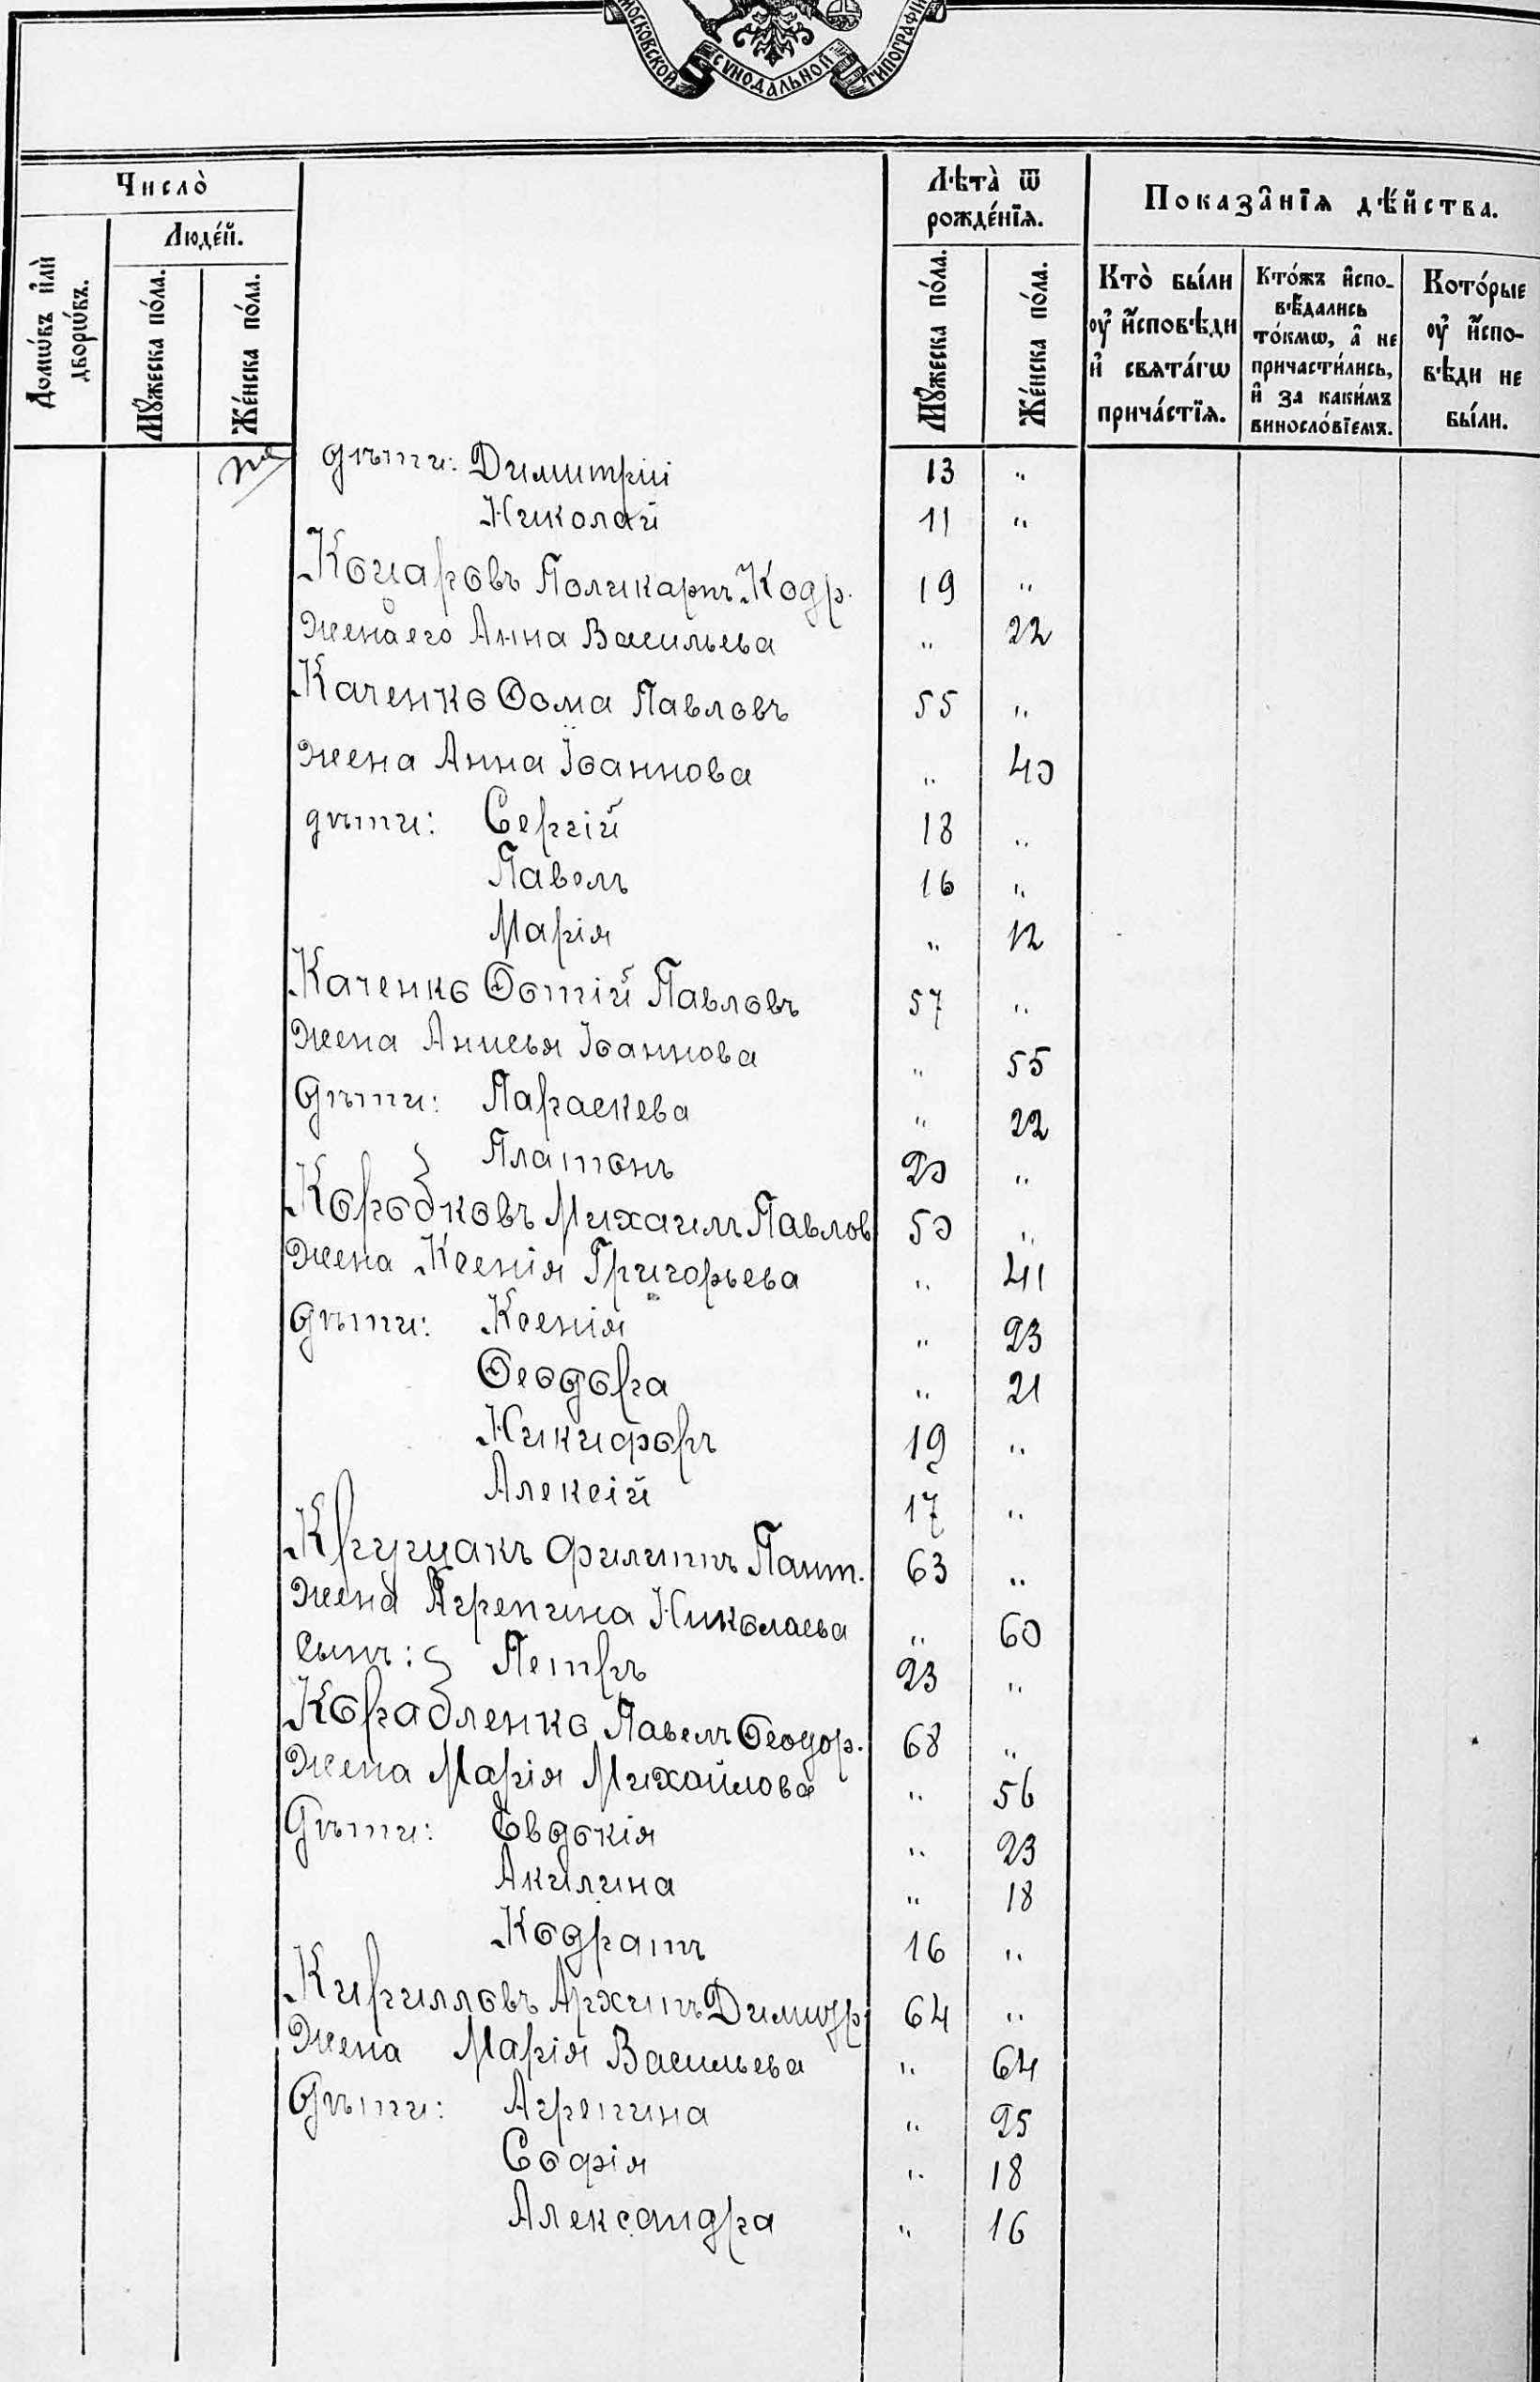 МОСКОВСКОЙ СУНОДАЛЬНОЙ ТИПОГРАФІИ
Число̀
Людéй.
Домѡ́въ и҆лѝ дворѡ́въ.
Мꙋ́жеска по́ла.
Же́нска по́ла.
Лѣ́та̀ ѿ рожде́нїѧ.
Мꙋ́жеска по́ла.
Же́нска по́ла.
Показа̂нїѧ дѣ́йства.
Кто̀ бы́ли
оу҆ и҆́сповѣди
и҆ свѧта́гѡ
прича́стїѧ.
Кто́жъ и҆спо-
вѣ́дались
то́кмѡ, а҆ не
причасти́лись,
и҆ за каки́мъ
винословїемъ.
Кото́рые
оу҆ и҆́спо-
вѣди не
бы́ли.
дѣти: Димитрій 13 "
Николай 11 "
Коцаровъ Поликарпъ Кодр. 19 "
Жена его Анна Васильева " 22
Каченко Ѳома Павловъ 55 "
Жена Анна Іоаннова " 40
дѣти: Сергій 18 "
Павелъ 16 "
Марія " 12
Каченко Ѳотій Павловъ 57 "
Жена Анисья Іоаннова " 55
Дѣти: Параскева " 22
Платонъ 20 "
Коробковъ Михаилъ Павлов 50 "
Жена Ксенія Григорьева " 41
Дѣти: Ксенія " 23
Ѳеодора " 21
Никифоръ 19 "
Алексій 17 "
Крущакъ Филиппъ Пант. 63 "
Жена Агрепина Николаева " 60
Сынъ: Петръ 23 "
Корабленко Павелъ Ѳеодор. 68 "
Жена Марія Михайлова " 56
Дѣти: Евдокія " 23
Акилина " 18
Кодратъ 16 "
Кирилловъ Архипъ Димитр. 64 "
Жена Марія Васильева " 64
Дѣти: Агрепина " 25
Софія " 18
Александра " 16